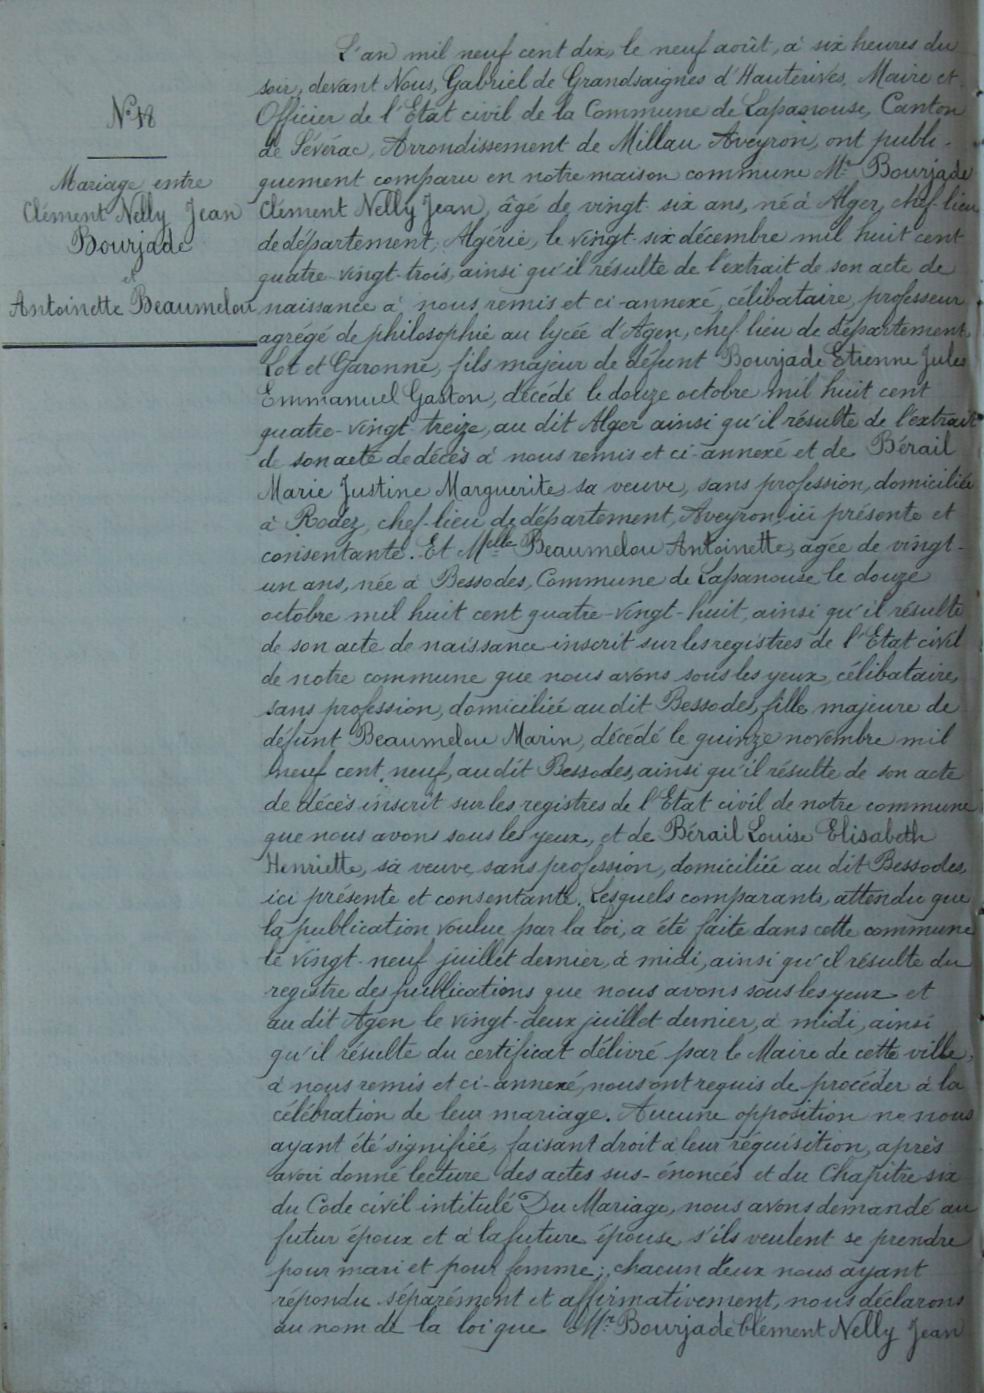 N° 18
Mariage entre
Clément Nelly Jean
Bourjade
et
Antoinette Beaumelou
L'an mil neuf cent dix, le neuf août, à six heures du
soir, devant Nous, Gabriel de Grandsaignes d'Hauterives, Maire et
Officier de l'Etat civil de la Commune de Lapanouse, Canton
de Sévérac, Arrondissement de Millau Aveyron, ont publi-
quement comparu en notre maison commune Mr Bourjade
Clément Nelly Jean, âgé de vingt-six ans, né à Alger, chef-lieu
de département, Algérie, le vingt-six décembre mil huit cent
quatre-vingt-trois, ainsi qu'il résulte de l'extrait de son acte de
naissance à nous remis et ci-annexé, célibataire, professeur
agrégé de philosophie au lycée d'Agen, chef-lieu de département,
Lot et Garonne, fils majeur de défunt Bourjade Etienne Jules
Emmanuel Gaston, décédé le douze octobre mil huit cent
quatre-vingt-treize, au dit Alger ainsi qu'il résulte de l'extrait
de son acte de décès à nous remis et ci-annexé et de Bérail
Marie Justine Marguerite, sa veuve, sans profession, domiciliée
à Rodez, chef-lieu de département, Aveyron, ici présente et
consentante. Et Melle Beaumelou Antoinette, agée de vingt-
un ans, née à Bessodes, Commune de Lapanouse le douze
octobre mil huit cent quatre-vingt-huit, ainsi qu'il résulte
de son acte de naissance inscrit sur les registres de l'Etat civil
de notre commune que nous avons sous les yeux, célibataire,
sans profession, domiciliée au dit Bessodes, fille majeure de
défunt Beaumelou Marin, décédé le quinze novembre mil
neuf cent neuf, au dit Bessodes, ainsi qu'il résulte de son acte
de décès inscrit sur les registres de l'Etat civil de notre commune
que nous avons sous les yeux, et de Bérail Louise Elisabeth
Henriette, sa veuve, sans profession, domiciliée au dit Bessodes,
ici présente et consentante. Lesquels comparants, attendu que
la publication voulue par la loi, a été faite dans cette commune
le vingt-neuf juillet dernier, à midi, ainsi qu'il résulte du
registre des publications que nous avons sous les yeux et
au dit Agen le vingt-deux juillet dernier, à midi, ainsi
qu'il résulte du certificat délivré par le Maire de cette ville,
à nous remis et ci-annexé, nous ont requis de procéder à la
célébration de leur mariage. Aucune opposition ne nous
ayant été signifiée, faisant droit à leur réquisition, après
avoir donné lecture des actes sus-énoncés et du Chapitre six
du Code civil intitulé Du Mariage, nous avons demandé au
futur époux et à la future épouse s'ils veulent se prendre
pour mari et pour femme; chacun d'eux nous ayant
répondu séparément et affirmativement, nous déclarons
au nom de la loi que Mr Bourjade Clément Nelly Jean